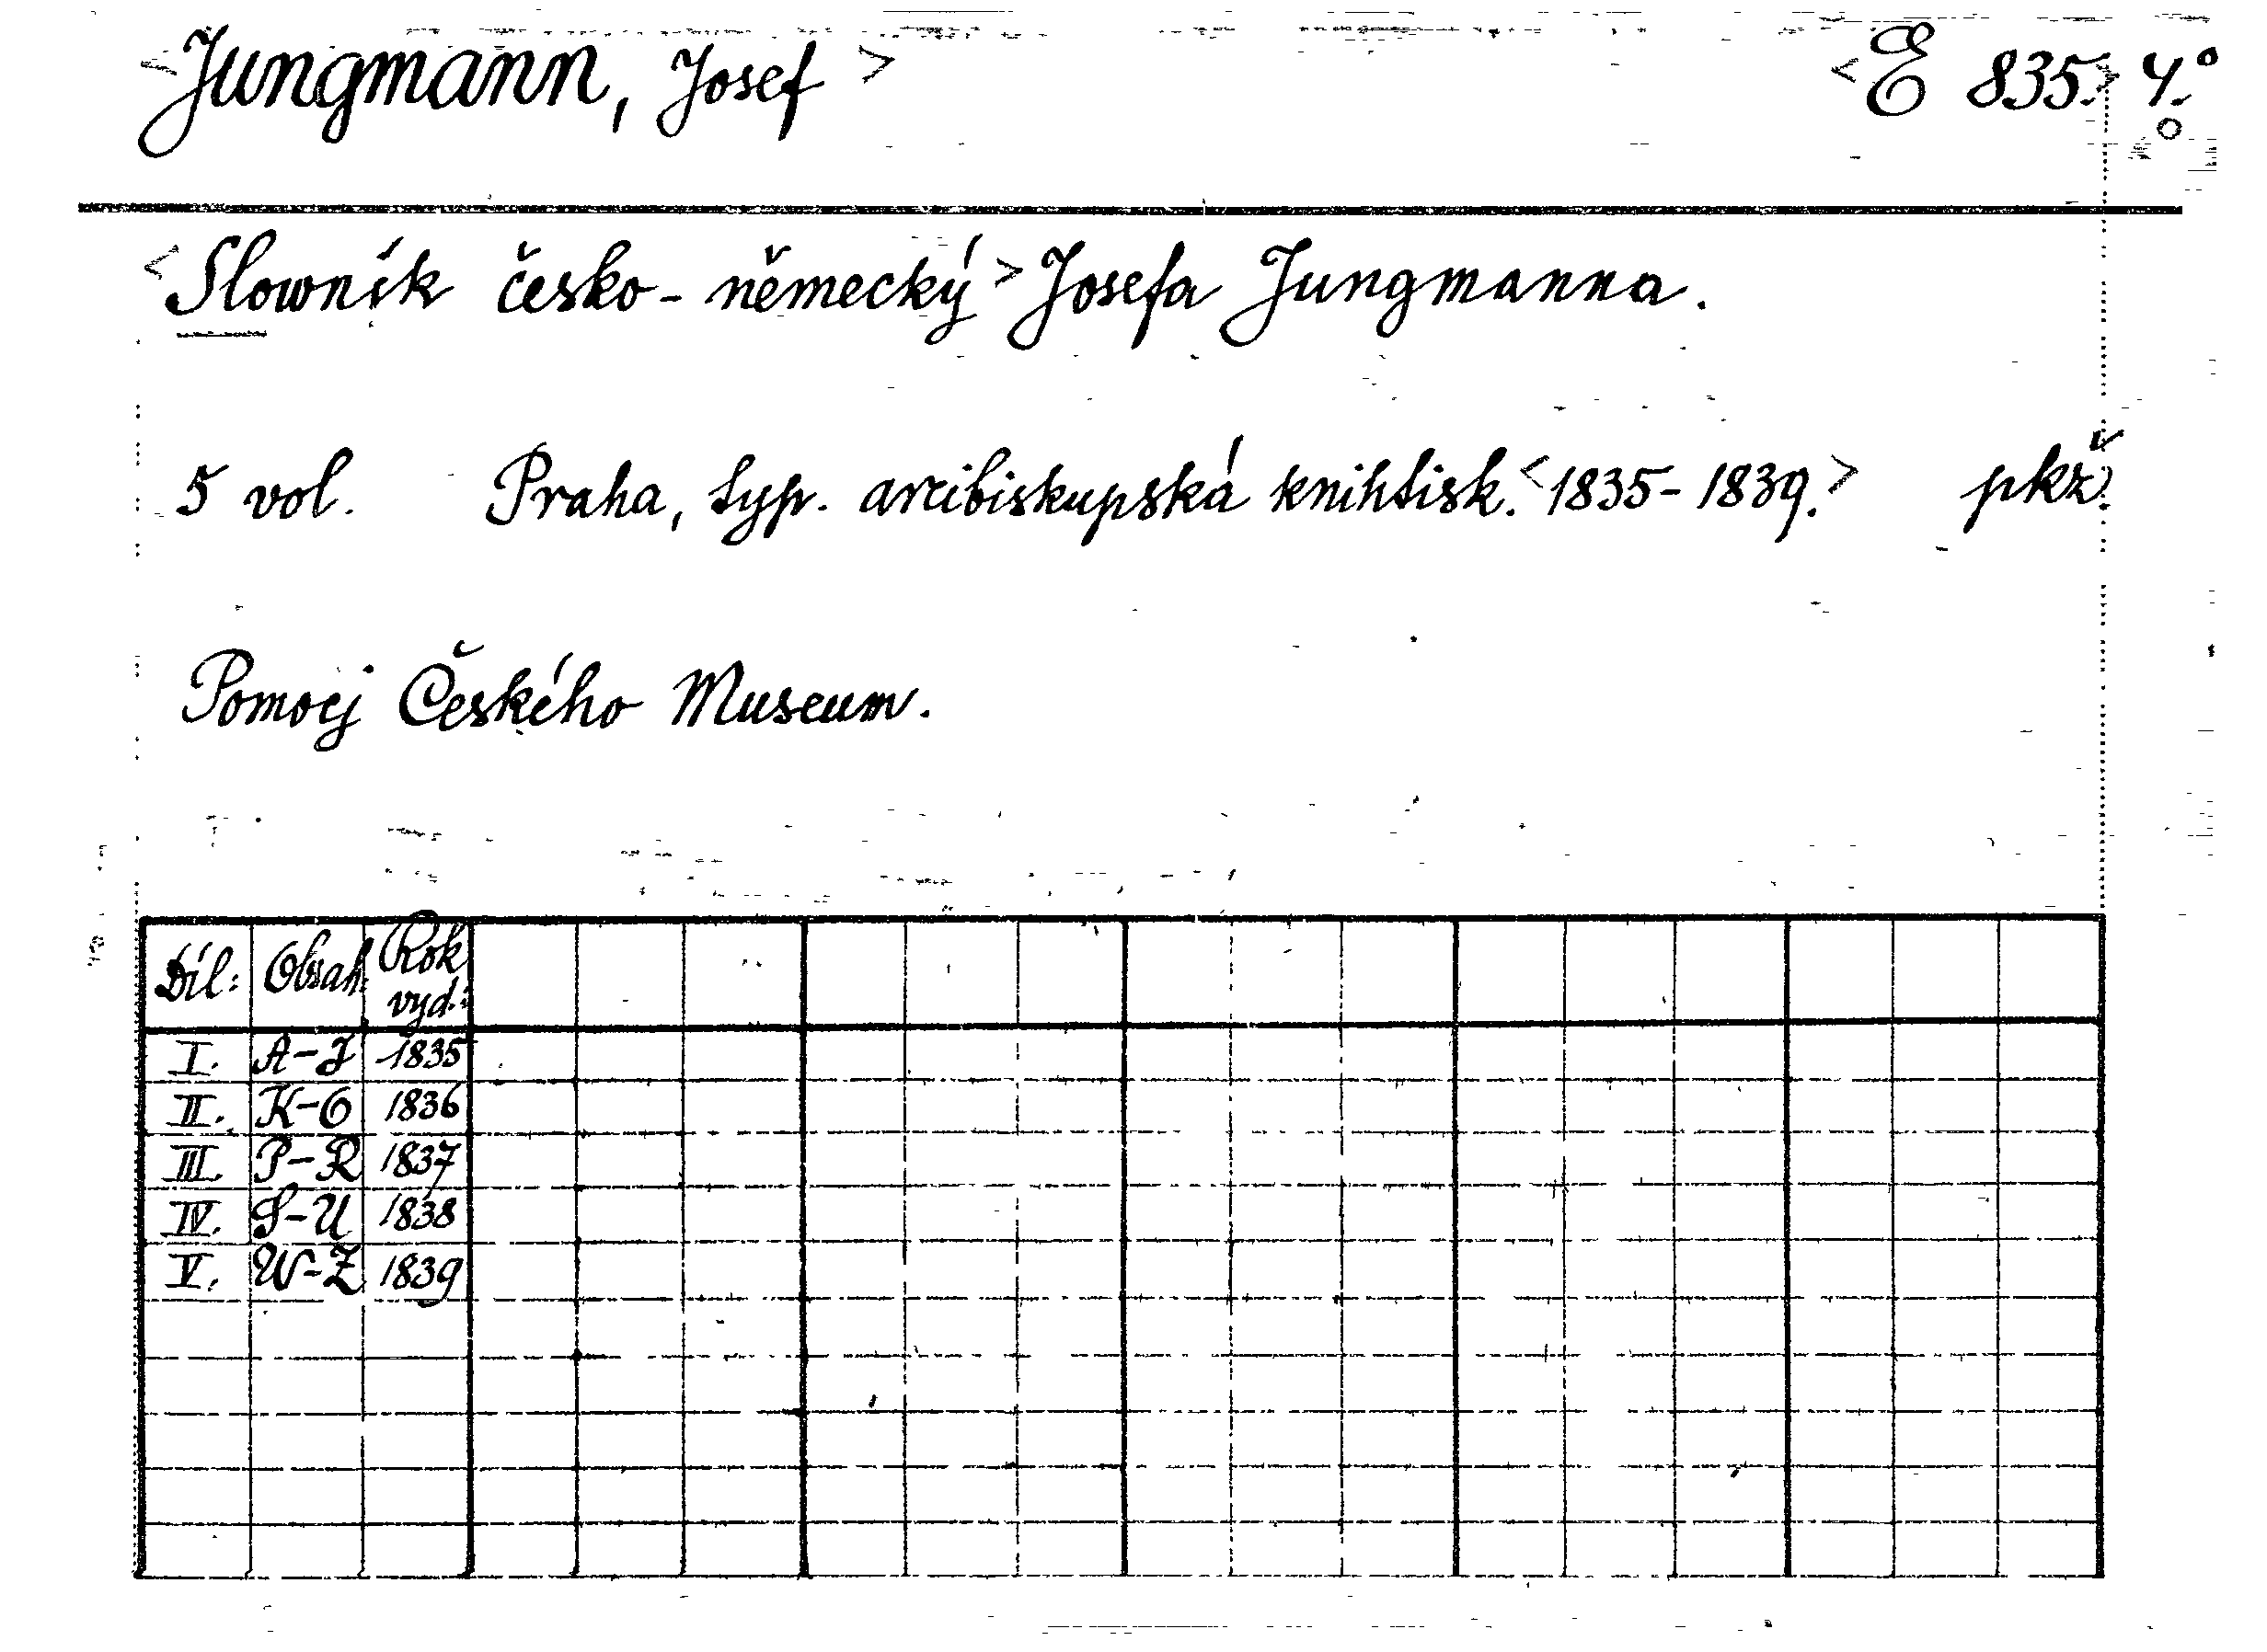 <Jungmann, Josef> <E 835.> 4.°
<Slowník česko-německý> Josefa Jungmanna.
5 vol. Praha, typ. arcibiskupská knihtisk. <1835-1839.> pkž.
Pomocj Českého Museum.
Díl: Obsah: Rok vyd.:
I. A-J 1835
II. K-O 1836
III. P-R 1837
IV. S-U 1838
V. W-Z 1839